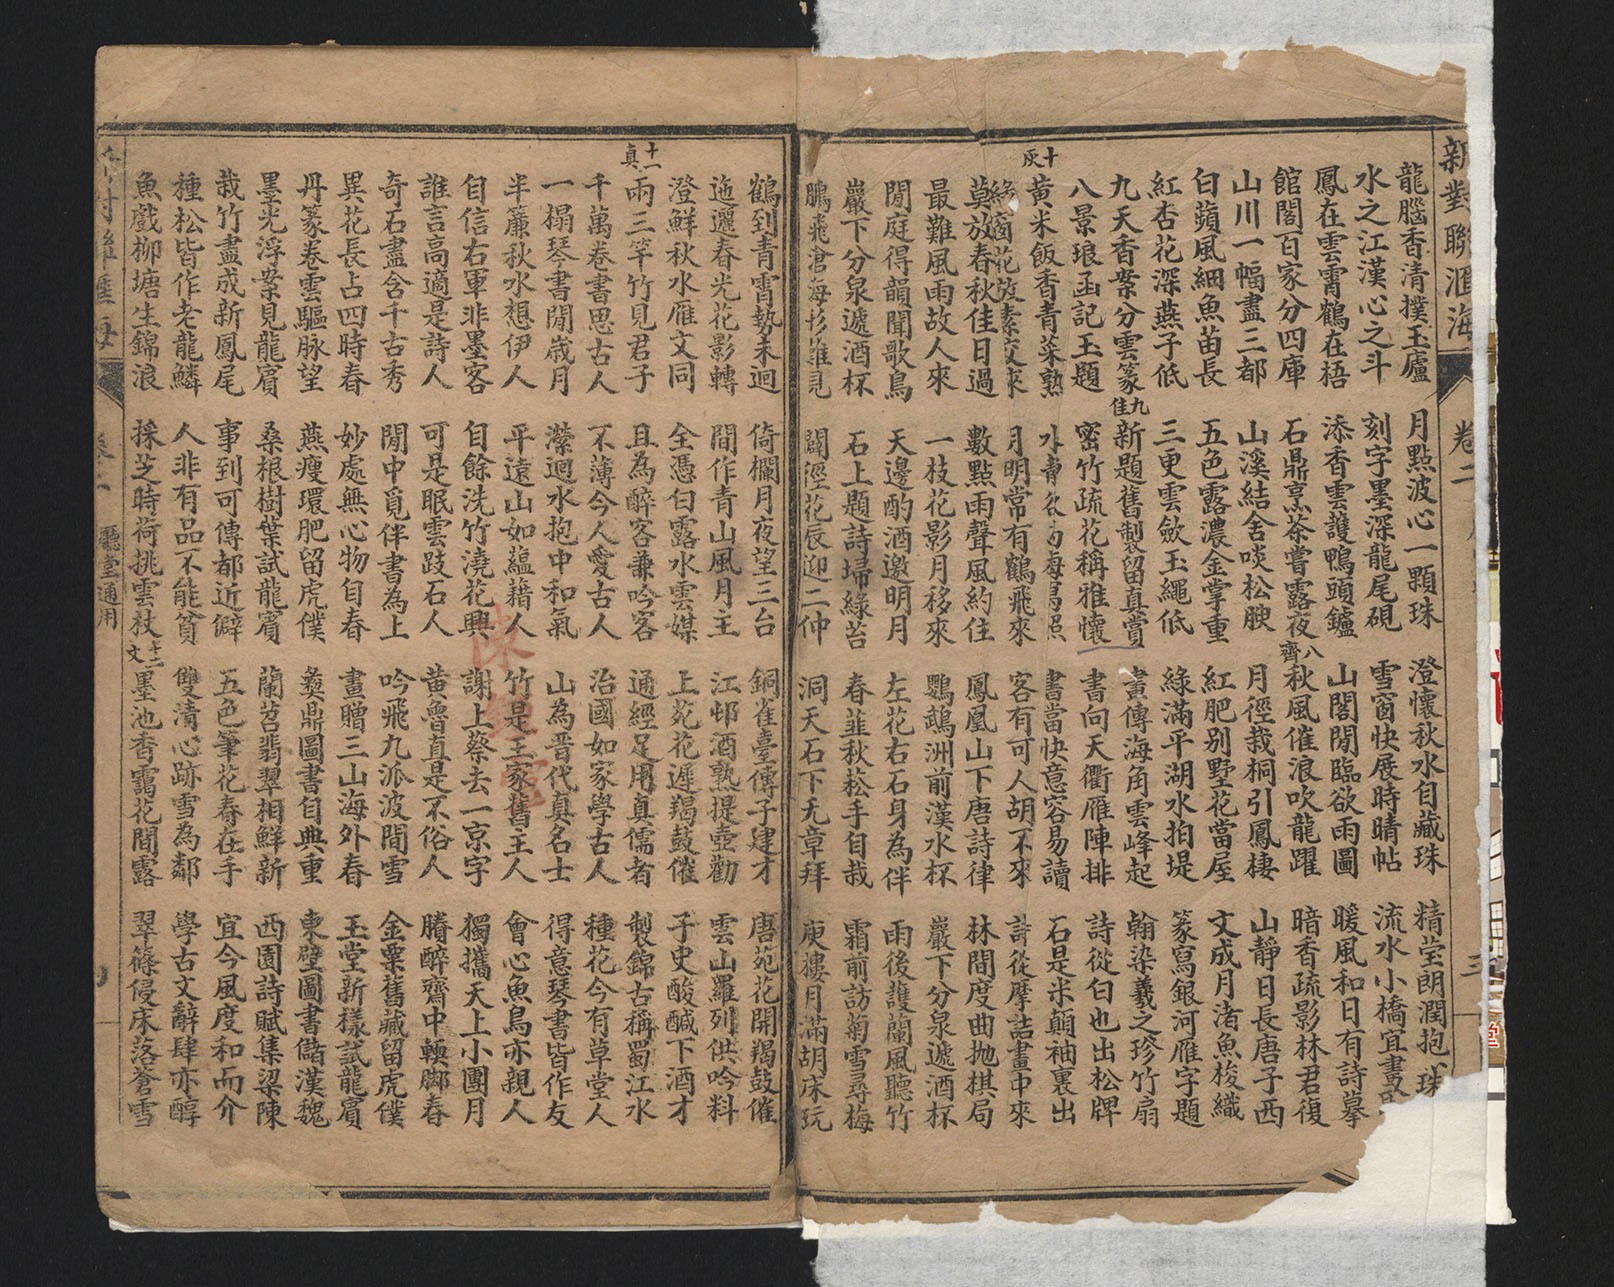 新對聯匯海 卷二 三
龍腦香清撲玉廬 月點波心一顆珠 澄懷秋水自藏珠 精莹朗潤抱 珠
水之江漢心之斗 刻字墨深龍尾硯 雪窗快展時晴帖 流水小橋宜書
鳳在雲霄鶴在梧 添香雲護鴨頭鑪 山閣閒臨欲雨圖 暖風和日有詩摹
館閣百家分四庫 石鼎烹茶嘗露夜 八齊 秋風催浪吹龍躍 暗香疏影林君復
山川一幅畫三都 山溪結舍啖松腴 月徑栽桐引鳳棲 山靜日長唐子西
白蘋風細魚苗長 五色露濃金掌重 紅肥别墅花當屋 文成月渚魚梭織
紅杏花深燕子低 三更雲斂玉繩低 綠滿平湖水拍堤 篆寫銀河雁字題
九天香案分雲篆 九佳 新題舊製留真賞 畫傳海角雲峰起 翰染羲之珍竹扇
八景琅函記玉題 密竹疏花稱雅懷 書向天衢雁陣排 詩從白也出松牌
十灰 黄米飯香青菜熟 水 書當快意容易讀 石是米顛袖裏出
綠窗花放素 來 月明常有鶴飛來 客有可人胡不來 詩從摩詰畫中來
莫放春秋佳日過 數點雨聲風約住 鳳凰山下唐詩律 林間度曲拋棋局
最難風雨故人來 一枝花影月移來 鸚鵡洲前漢水杯 巖下分泉遞酒杯
閒庭得韻聞歌鳥 天邊酌酒邀明月 左花右石身為伴 雨後護蘭風聽竹
巖下分泉遞酒杯 石上題詩埽綠苔 春韮秋菘手自栽 霜前訪菊雪尋梅
鵬飛滄海形難見 闢徑花辰迎二仲 洞天石下无章拜 庾樓月滿胡床玩
鶴到青霄勢未迴 倚欄月夜望三台 銅雀臺傳子建才 唐苑花開羯鼓催
迤邐春光花影轉 間作青山風月主 江邨酒熟提壺勸 雲山羅列供吟料
澄鮮秋水雁文同 全憑白露水雲媒 上苑花遲羯鼓催 子史酸醎下酒才
十一真 兩三竿竹見君子 且為醉客兼吟客 通經足用真儒者 製錦古稱蜀江水
千萬卷書思古人 不薄今人愛古人 治國如家學古人 種花今有草堂人
一榻琴書閒歲月 瀠迴水抱中和氣 山為晋代真名士 得意琴書皆作友
半簾秋水想伊人 平遠山如蘊藉人 竹是王家舊主人 會心魚鳥亦親人
自信右軍非墨客 自餘洗竹澆花興 謝上蔡去一京字 獨攜天上小團月
誰言高適是詩人 可是眠雲跂石人 黄魯直是不俗人 賸醉齋中輭腳春
奇石盡含千古秀 閒中覓伴書為上 吟飛九派波間雪 金粟舊藏留虎僕
異花長占四時春 妙處無心物自春 畫贈三山海外春 玉堂新樣試龍賓
丹篆卷雲驅脉望 燕瘦環肥留虎僕 彝鼎圖書自典重 東壁圖書儲漢魏
墨光浮案見龍賓 桑根樹葉試龍賓 蘭苕翡翠相鮮新 西園詩賦集梁陳
栽竹盡成新鳳尾 事到可傳都近僻 五色筆花春在手 宜今風度和而介
種松皆作老龍鱗 人非有品不能貧 雙清心跡雪為鄰 學古文辭肆亦醇
魚戲柳塘生錦浪 採芝時荷挑雲杖 十二文 墨池香靄花間露 翠篠侵床落蒼雪
廳堂通用